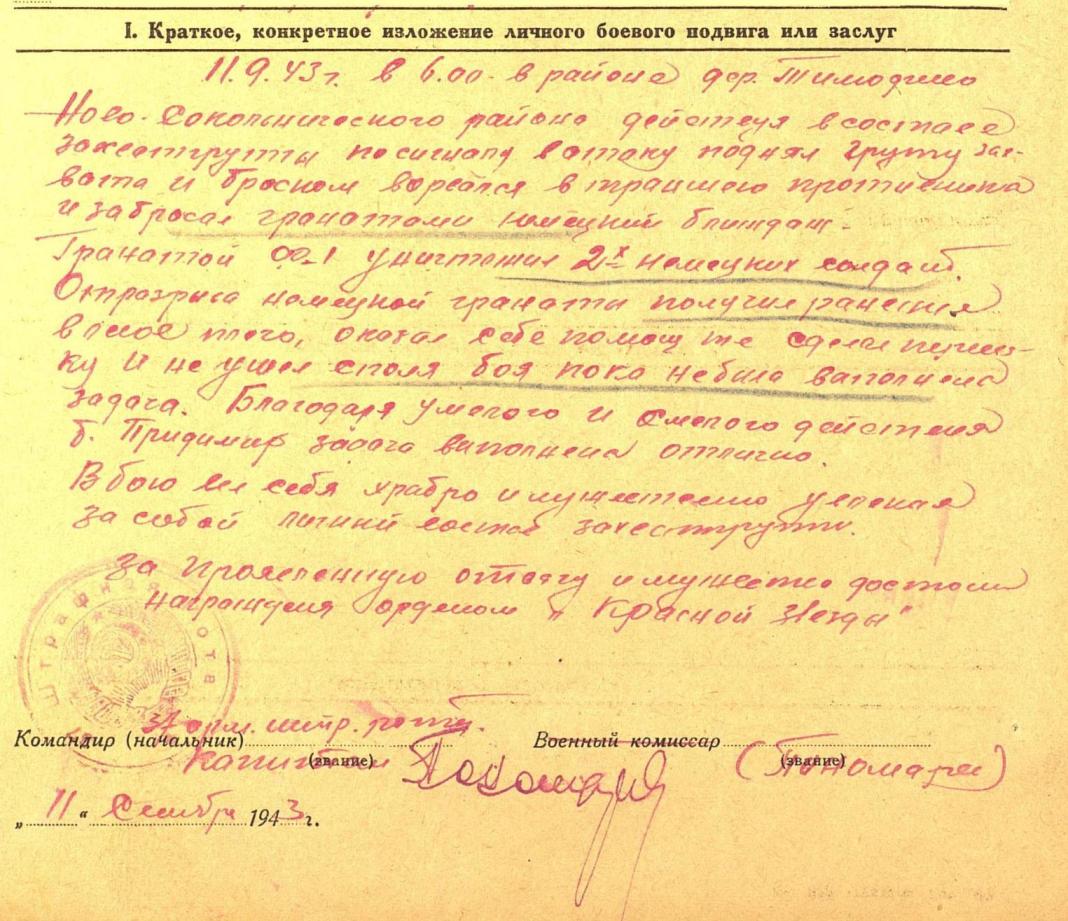 I. Краткое, конкретное изложение личного боевого подвига или заслуг
11.9.43г. в 6.00 в районе дер. Тимохино
Ново-Сокольнического района действуя в составе
захватгруппы по сигналу в атаку поднял группу зах-
вата и броском ворвался в траншею противника
и забросал гранатами немецкий блиндаж.
Гранатой Ф-1 уничтожил 2х немецких солдат.
От разрыва немецкой гранаты получил ранения
в ... того, оказал себе помощь сделал перевяз-
ку и не ушел с поля боя пока не была выполнена
задача. Благодаря умелого и смелого действия
б. задача выполнена отлично.
В бою вел себя храбро и мужественно увлекая
за собой личный состав захватгруппы.
За проявленную отвагу и мужество достоин
награждения орденом „Красной Звезды"
Штрафная рота
Командир (начальник) штр. роты.
капитан (звание)
Военный комиссар (звание) (Пономарев)
„11" Сентября 1943г.